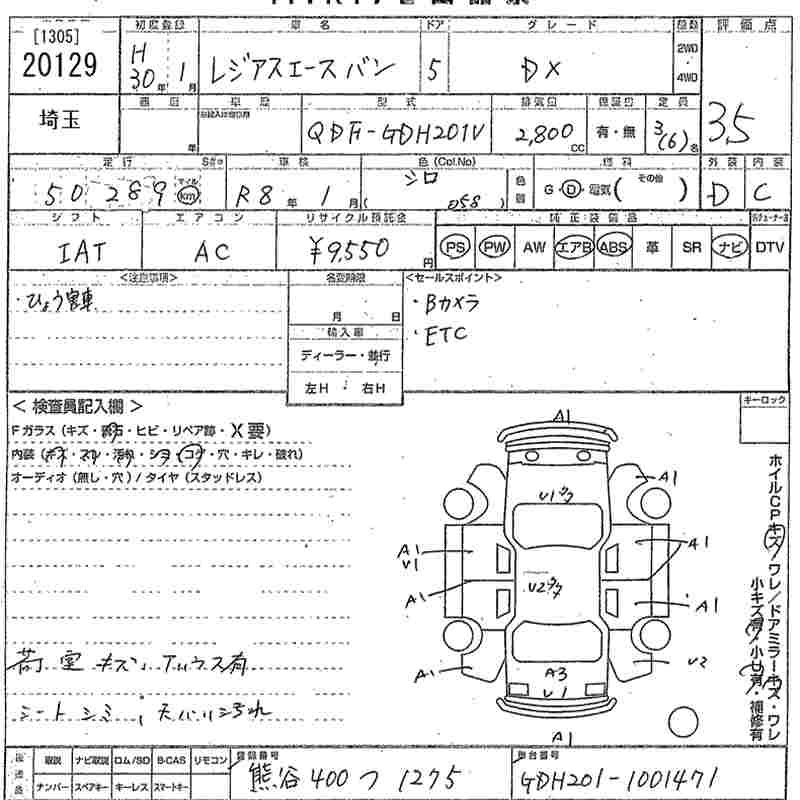 [1305]
20129
初度登録 車名 ドア グレード 駆動 評価点
H30年1月 レジアスエースバン 5 DX 2WD 4WD 3.5
埼玉
型式 排気量 保証書 定員
年 QDF-GDH201V 2,800cc 有・無 3(6)名
走行 車検 色(Col.No) 燃料 外装 内装
50289 マイル km R8年1月 シロ (058) G・D・電気( その他 ) D C
シフト エアコン リサイクル預託金 純正装備品
IAT AC ¥9,550円 PS PW AW エアB ABS 革 SR ナビ DTV
<注意事項> 名変期限 <セールスポイント>
・ひょう害車 月 日 ・Bカメラ
輸入車 ・ETC
ディーラー・並行
左H・右H
<検査員記入欄> キーロック
Fガラス(キズ・飛石・ヒビ・リペア跡・X要)
内装(キズ・スレ・汚れ・シミ・コゲ・穴・キレ・破れ)
オーディオ(無し・穴)/タイヤ(スタッドレス)
A1
A1
U1
A1
V1
A1
U2
A1
A1
A1
A1
U2
A3
U1
A1
ホイルCPキズ/ワレ/ドアミラーキズ・ワレ
小キズ
補修有
荷室キズ
シートシミ
取説 ナビ取説 ロム/SD B-CAS リモコン 登録番号 車台番号
ナンバー スペアキー キーレス スマートキー 熊谷 400 つ 1275 GDH201-1001471